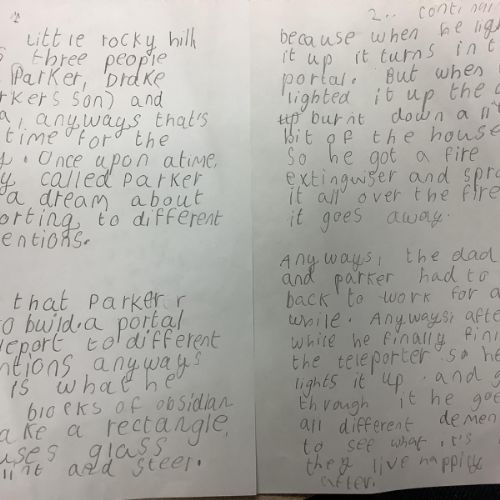 Little rocky hill
three people
Parker, Drake
rkers son) and
a, anyways that's
time for the
y. Once upon a time,
y called Parker
a dream about
orting to different
entions.
that Parker
o build a portal
leport to different
ntions anyways
is what he
blocks of obsidian
ake a rectangle,
uses glass
lint and steer.
2.. contin
because when he lig
it up it turns in t
portal. But when
lighted it up the
up burnt down a lit
bit of the house
So he got a fire
extinguiser and spra
it all over the fire
it goes away.
Anyways, the dad
and parker had to
back to work for a
while. Anyways, afte
while he finally fini
the teleporter so he
lights it up. and g
through it he goe
all different demen
to see what it's
they live happily
after.